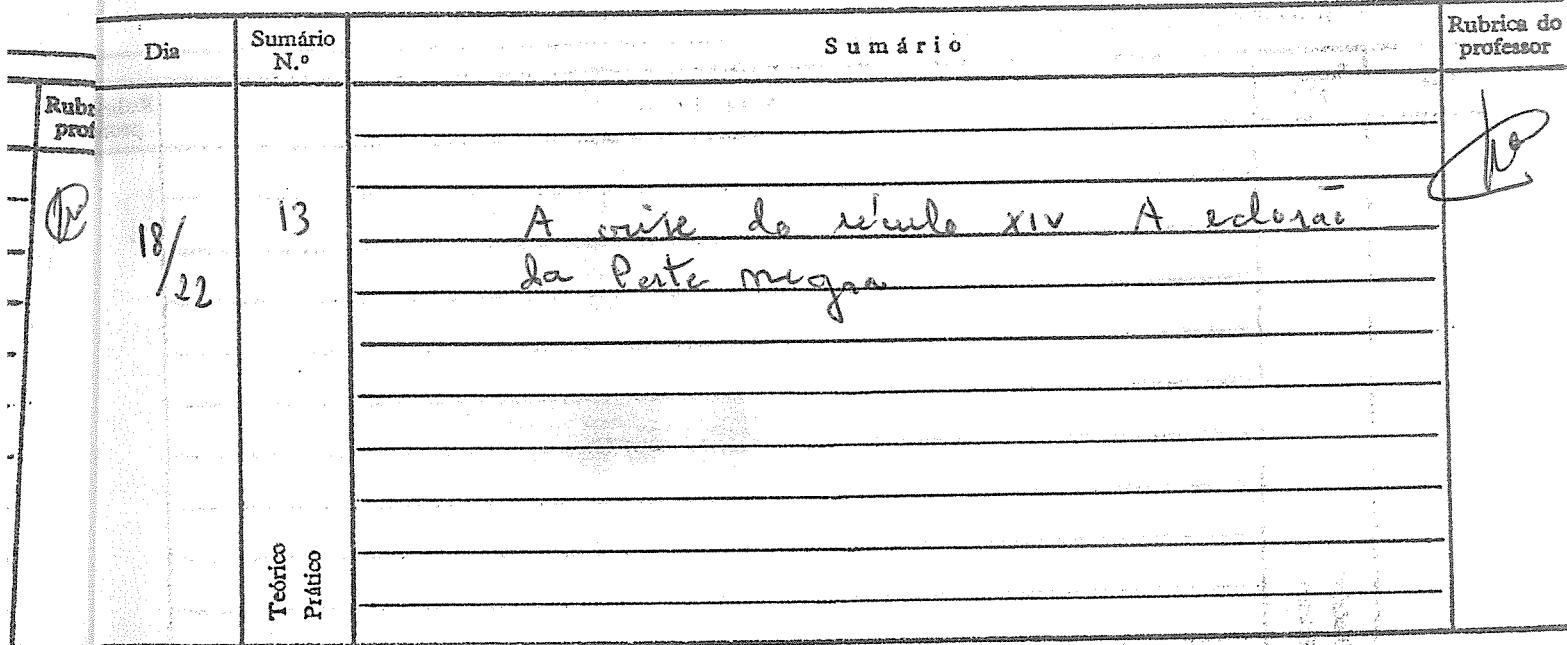 Dia
Sumário
N.º
Sumário
Rubrica do
professor
Rubr
prof
18/22
13
A crise do século XIV A eclosão
da Peste negra
Teórico
Prático